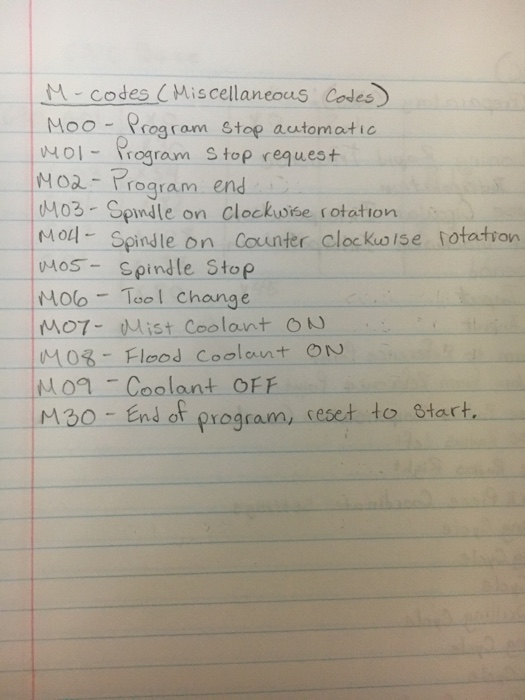 M-codes (Miscellaneous Codes)
M00 - Program stop automatic
M01 - Program stop request
M02 - Program end
M03 - Spindle on clockwise rotation
M04 - Spindle on counter clockwise rotation
M05 - Spindle Stop
M06 - Tool change
M07 - Mist Coolant ON
M08 - Flood coolant ON
M09 - Coolant OFF
M30 - End of program, reset to start.